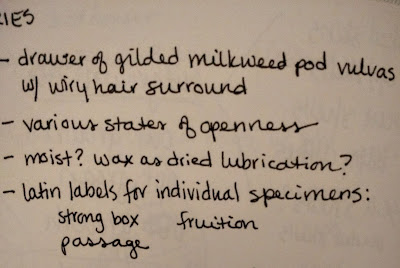 IES
- drawer of gilded milkweed pod vulvas
w/ wiry hair surround
- various states of openness
- moist? wax as dried lubrication?
- latin labels for individual specimens:
strong box fruition
passage